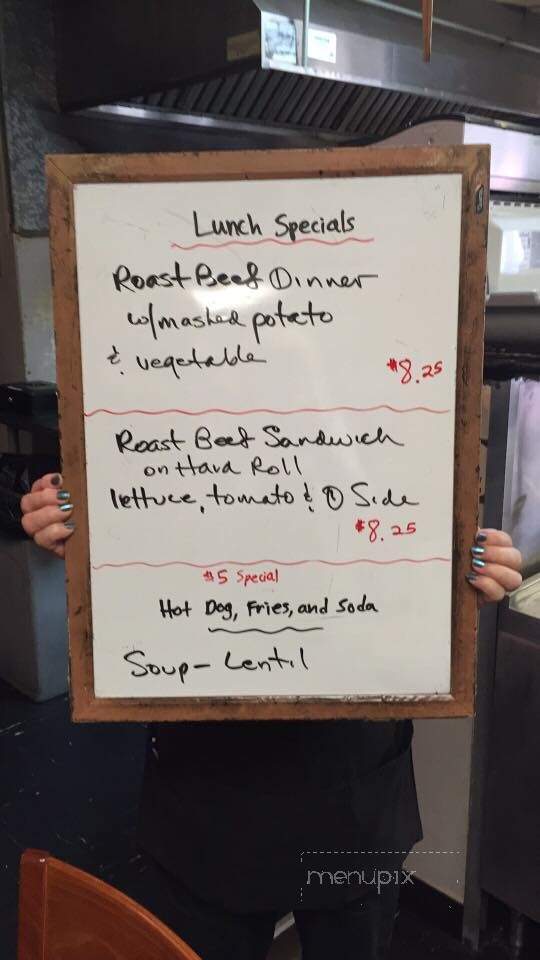 Lunch Specials
Roast Beef Dinner
w/mashed potato
& vegetable
$8.25
Roast Beef Sandwich
on Hard Roll
lettuce, tomato & ① Side
$8.25
$5 Special
Hot Dog, Fries, and Soda
Soup - Lentil
menupix